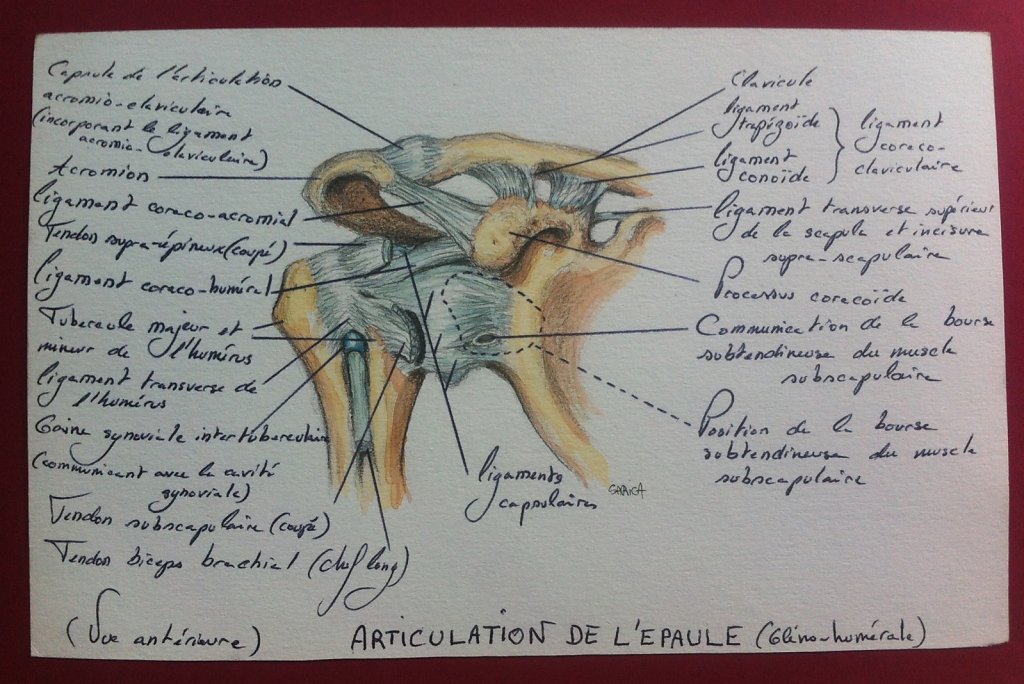 Capsule de l'articulation
acromio-claviculaire
(incorporant le ligament
acromio-claviculaire)
Acromion
ligament coraco-acromial
Tendon supra-épineux (coupé)
ligament coraco-huméral
Tubercule majeur et
mineur de l'humérus
ligament transverse de
l'humérus
Gaine synoviale intertuberculaire
(communicant avec la cavité
synoviale)
Tendon subscapulaire (coupé)
Tendon biceps brachial (chef long)
ligaments
capsulaires
Clavicule
ligament
trapézoïde
ligament
conoïde
ligament
coraco-
claviculaire
ligament transverse supérieur
de la scapula et incisure
supra-scapulaire
Processus coracoïde
Communication de la bourse
subtendineuse du muscle
subscapulaire
Position de la bourse
subtendineuse du muscle
subscapulaire
(Vue antérieure)
ARTICULATION DE L'EPAULE (Gléno-humérale)